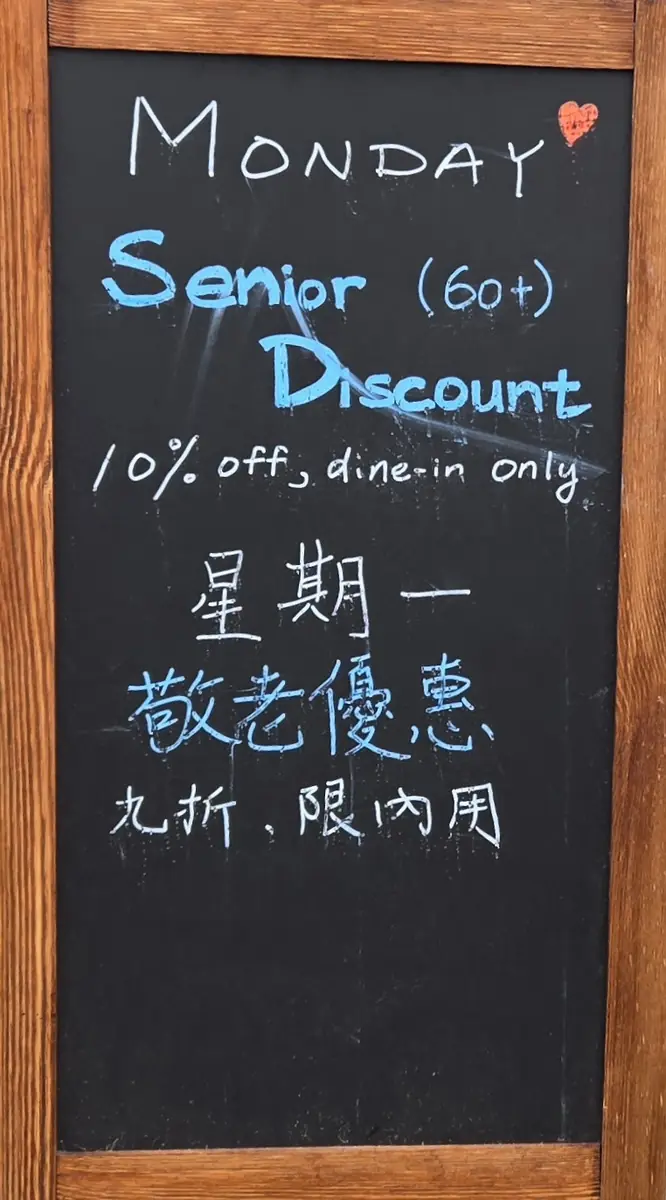 MONDAY
Senior (60+)
Discount
10% off, dine-in only
星期一
敬老優惠
九折、限內用